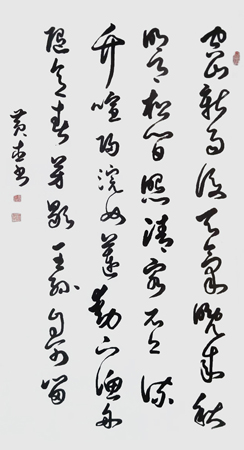 空山新雨後天氣晚來秋
明月松間照清泉石上流
竹喧歸浣女蓮動下漁舟
隨意春芳歇王孫自可留
黃 書